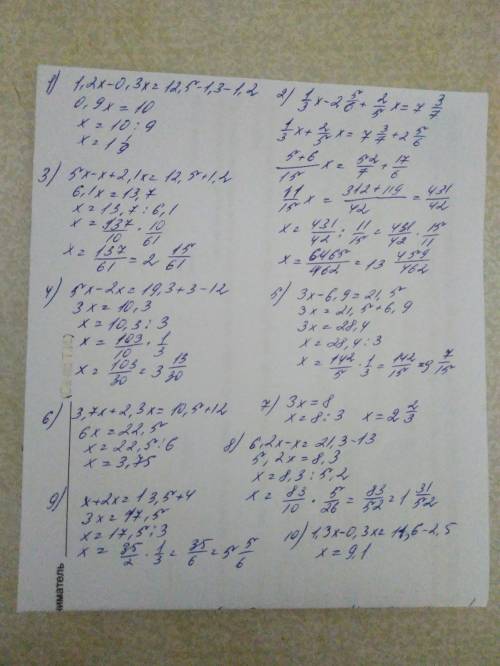 1) 1,2x-0,3x=12,5-1,3-1,2
0,9x=10
x=10:9
x=1 1/9
2) 1/3x-2 5/6+2/5x=7 3/7
1/3x+2/5x=7 3/7+2 5/6
5+6/15 x=52/7+17/6
11/15x=312+119/42=431/42
x=431/42:11/15=431/42·15/11
x=6465/462=13 459/462
3) 5x-x+2,1x=12,5+1,2
6,1x=13,7
x=13,7:6,1
x=137/10·10/61
x=137/61=2 15/61
4) 5x-2x=19,3+3-12
3x=10,3
x=10,3:3
x=103/10·1/3
x=103/30=3 13/30
5) 3x-6,9=21,5
3x=21,5+6,9
3x=28,4
x=28,4:3
x=142/5·1/3=142/15=9 7/15
6) 3,7x+2,3x=10,5+12
6x=22,5
x=22,5:6
x=3,75
7) 3x=8
x=8:3 x=2 2/3
8) 6,2x-x=21,3-13
5,2x=8,3
x=8,3:5,2
x=83/10·5/26=83/52=1 31/52
9) x+2x=13,5+4
3x=17,5
x=17,5:3
x=35/2·1/3=35/6=5 5/6
10) 1,3x-0,3x=11,6-2,5
x=9,1
ниматель